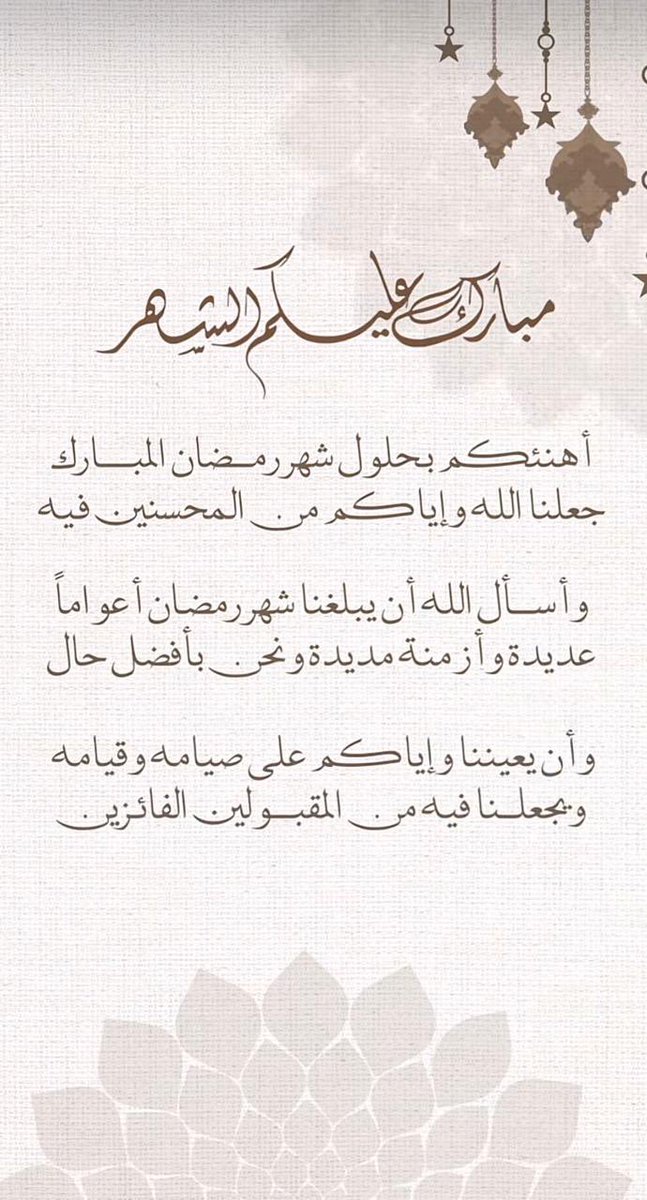 مبارك عليكم الشهر
أهنئكم بحلول شهر رمضان المبارك
جعلنا الله وإياكم من المحسنين فيه
وأسأل الله أن يبلغنا شهر رمضان أعواماً
عديدة وأزمنة مديدة ونحن بأفضل حال
وأن يعيننا وإياكم على صيامه وقيامه
ويجعلنا فيه من المقبولين الفائزين